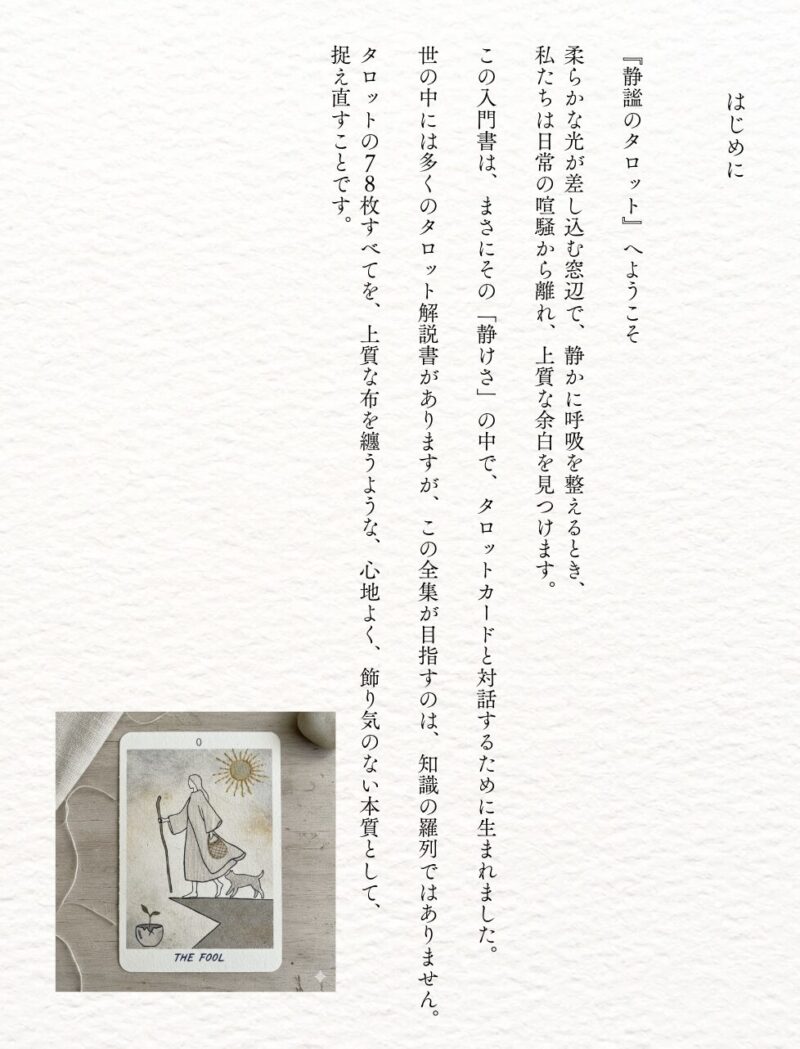 はじめに
『静謐のタロット』へようこそ
柔らかな光が差し込む窓辺で、静かに呼吸を整えるとき、
私たちは日常の喧騒から離れ、上質な余白を見つけます。
この入門書は、まさにその「静けさ」の中で、タロットカードと対話するために生まれました。
世の中には多くのタロット解説書がありますが、この全集が目指すのは、知識の羅列ではありません。
タロットの78枚すべてを、上質な布を纏うような、心地よく、飾り気のない本質として、
捉え直すことです。
0
THE FOOL